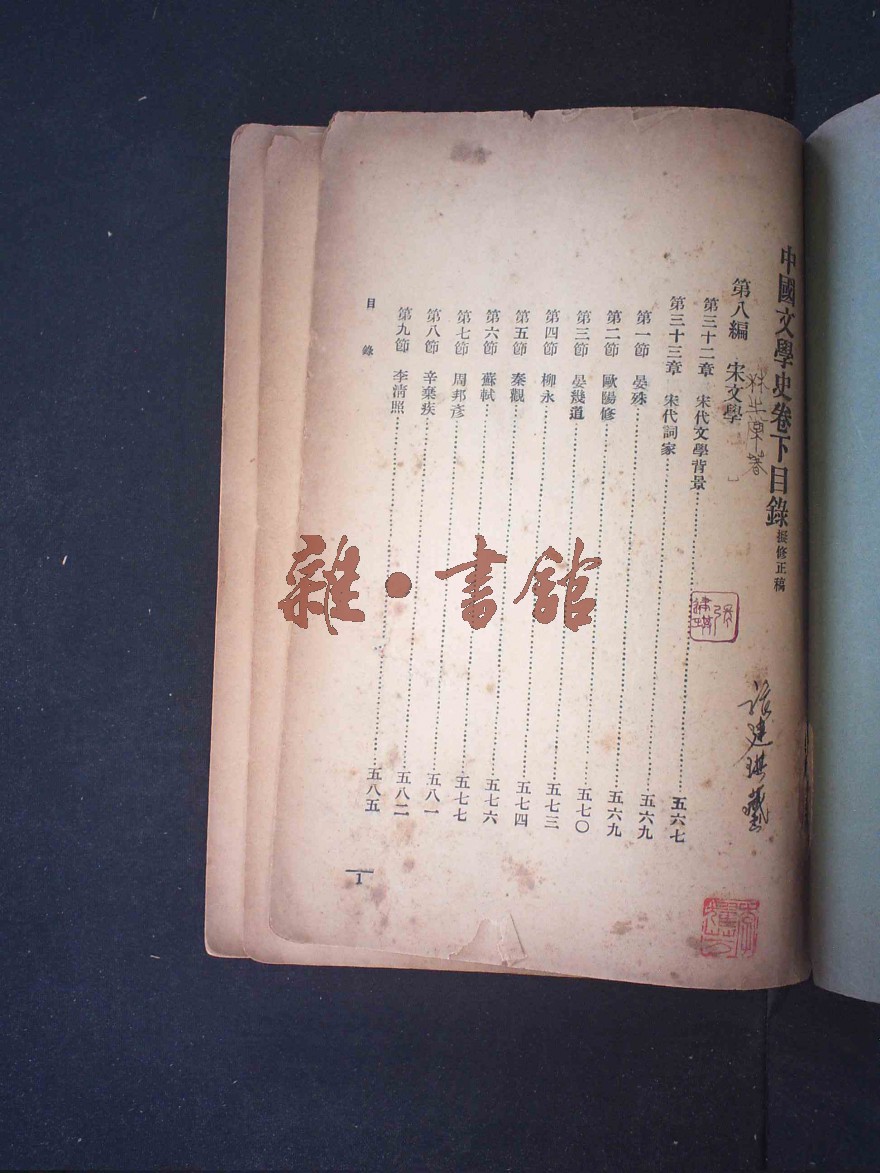 中國文學史卷下目錄 擬修正稿
第八編 宋文學
第三十二章 宋代文學背景 五六七
第三十三章 宋代詞家 五六九
第一節 晏殊 五六九
第二節 歐陽修 五七〇
第三節 晏幾道 五七三
第四節 柳永 五七四
第五節 秦觀 五七六
第六節 蘇軾 五七七
第七節 周邦彥 五八一
第八節 辛棄疾 五八二
第九節 李清照 五八五
目錄
1
雜·書館